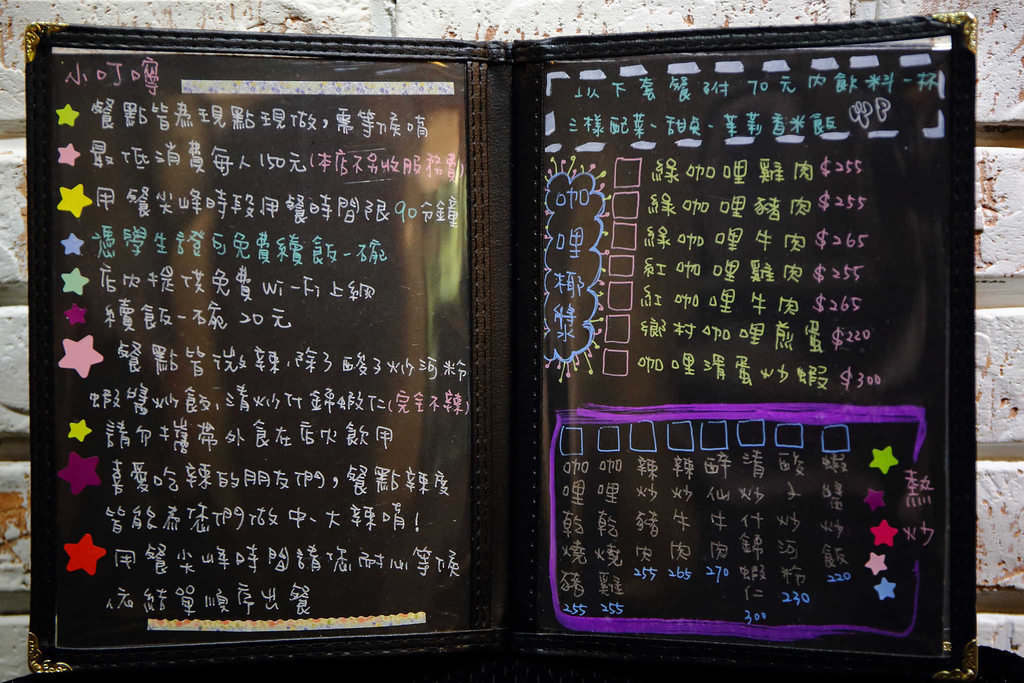 小叮嚀
餐點皆為現點現做，需等候唷
最低消費每人150元(本店不另收服務費)
用餐尖峰時段用餐時間限90分鐘
憑學生證可免費續飯一碗
店內提供免費Wi-Fi上網
續飯一碗20元
餐點皆微辣，除了酸子炒河粉
蝦醬炒飯，清炒什錦蝦仁(完全不辣)
請勿攜帶外食在店內飲用
喜愛吃辣的朋友們，餐點辣度
皆能為您們做中、大辣唷！
用餐尖峰時間請您耐心等候
依結單順序出餐
以下套餐附70元內飲料一杯
三樣配菜、甜點、茉莉香米飯
咖哩椰漿
綠咖哩雞肉$255
綠咖哩豬肉$255
綠咖哩牛肉$265
紅咖哩雞肉$255
紅咖哩牛肉$265
鄉村咖哩煎蛋$220
咖哩滑蛋炒蝦$300
熱炒
蝦醬炒飯220
酸子炒河粉230
清炒什錦蝦仁300
醉仙牛肉270
辣炒牛肉265
辣炒豬肉255
咖哩乾燒雞255
咖哩乾燒豬255